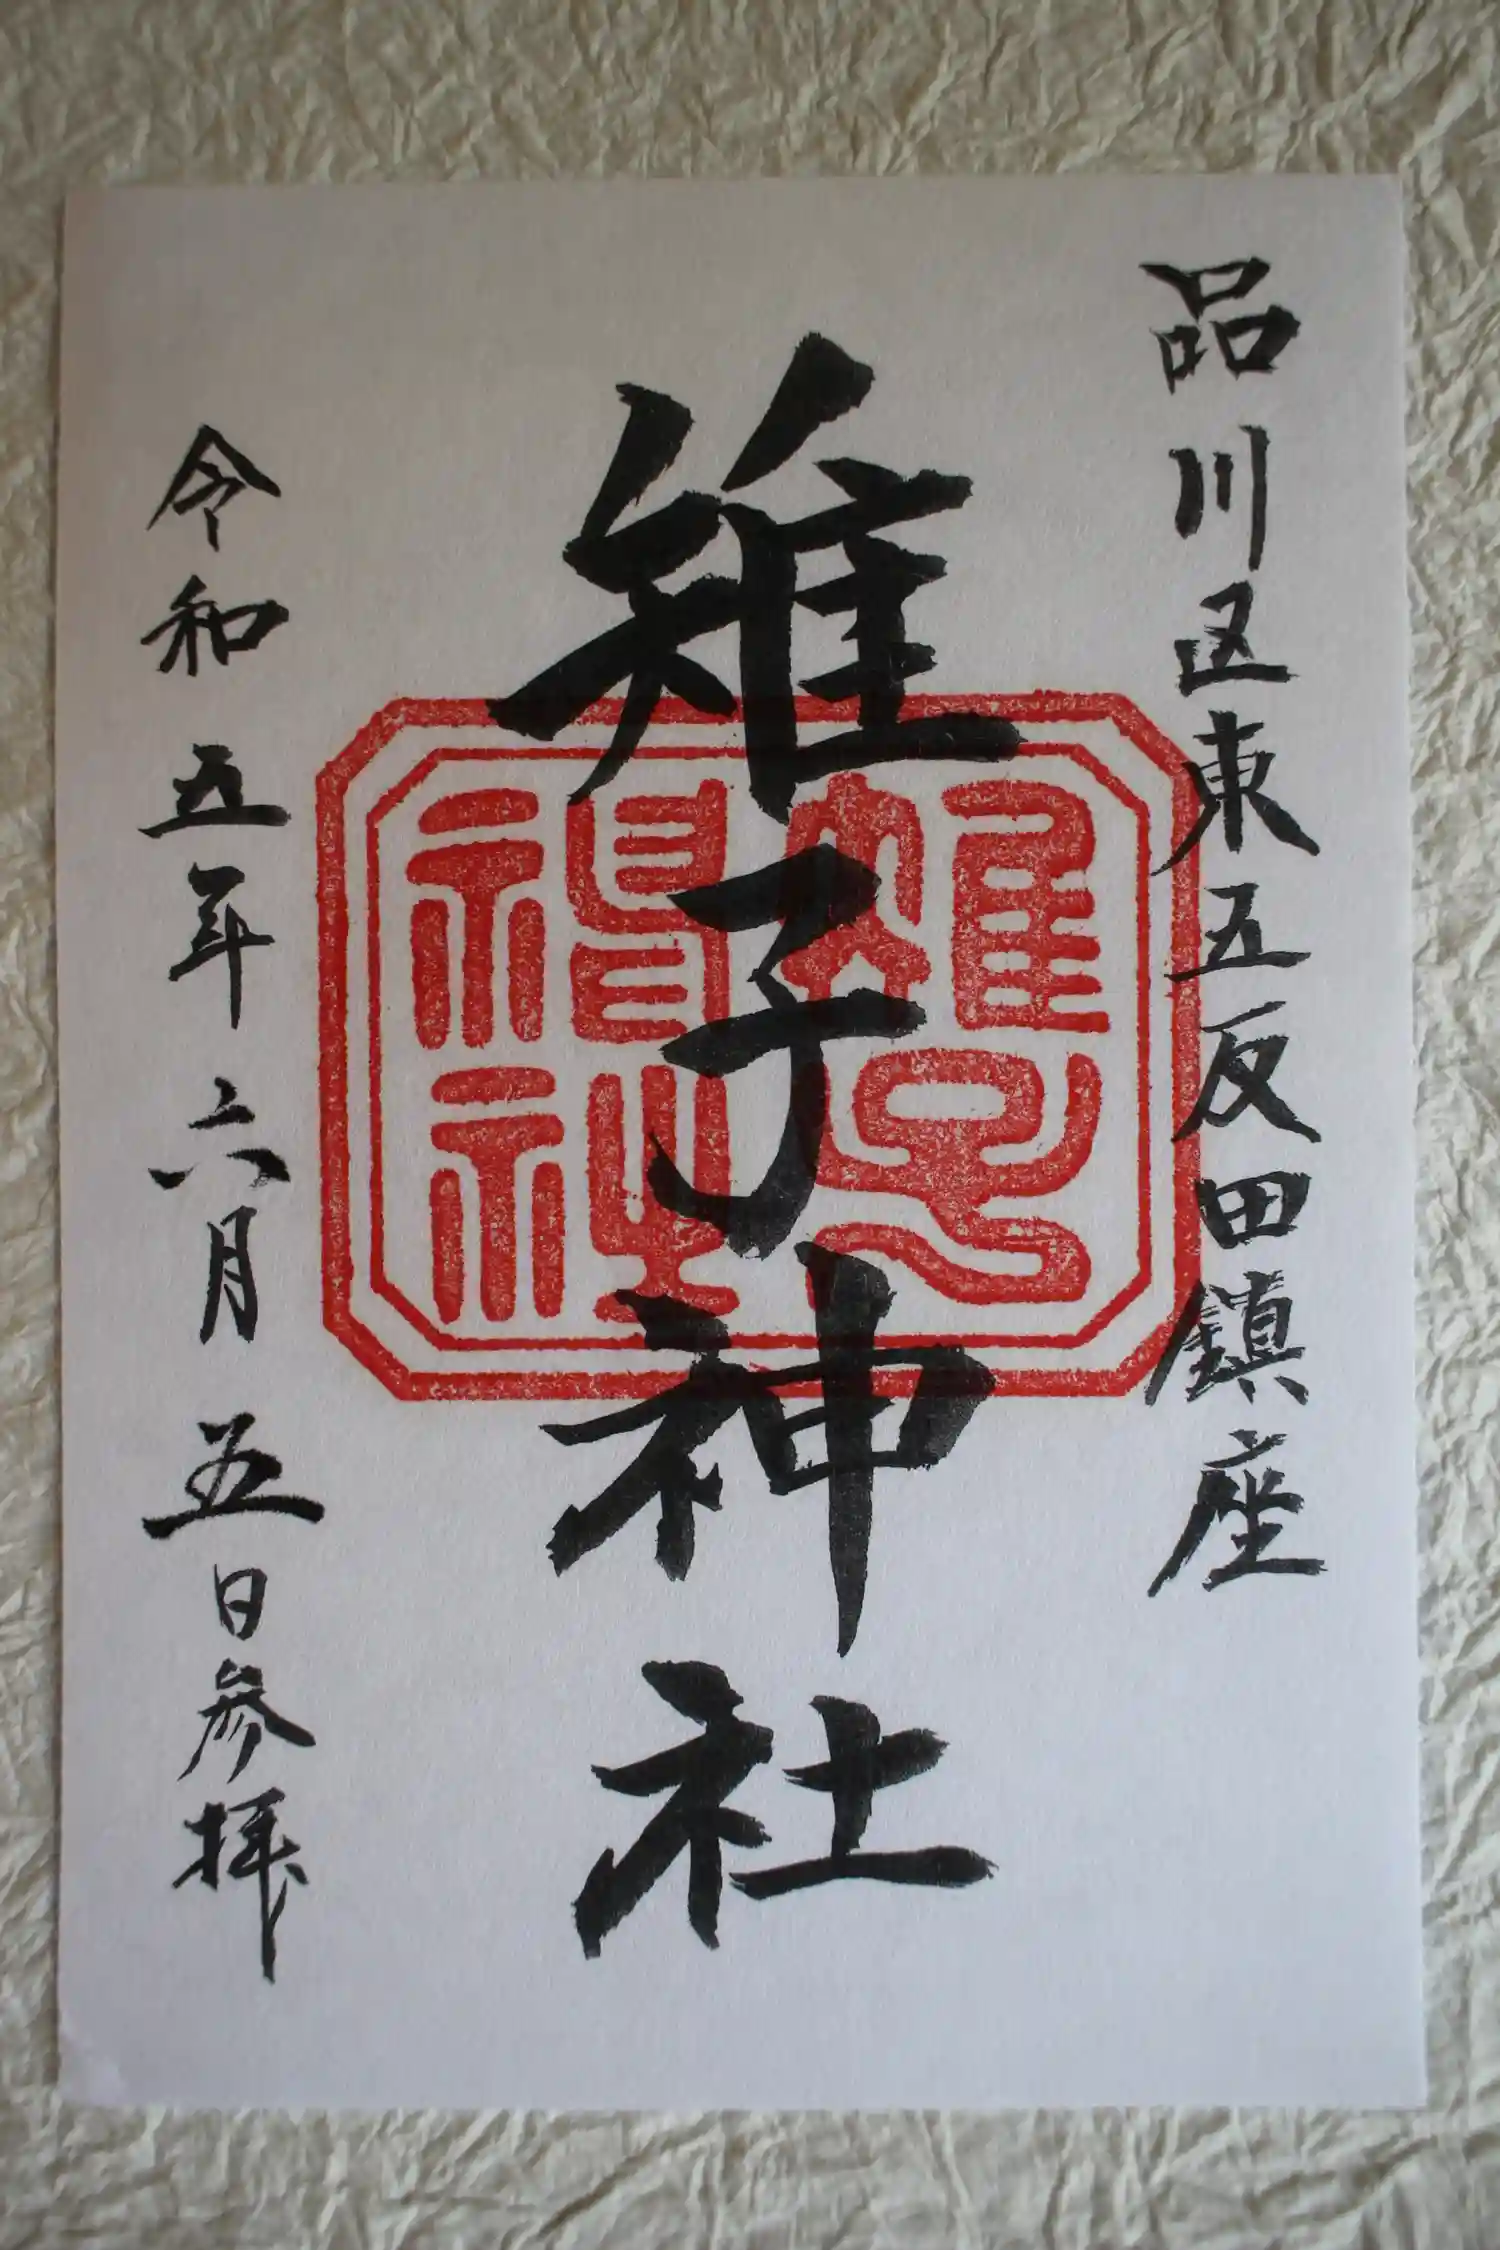 品川区東五反田鎮座
雉子神社
雉子神社
令和五年六月五日参拝